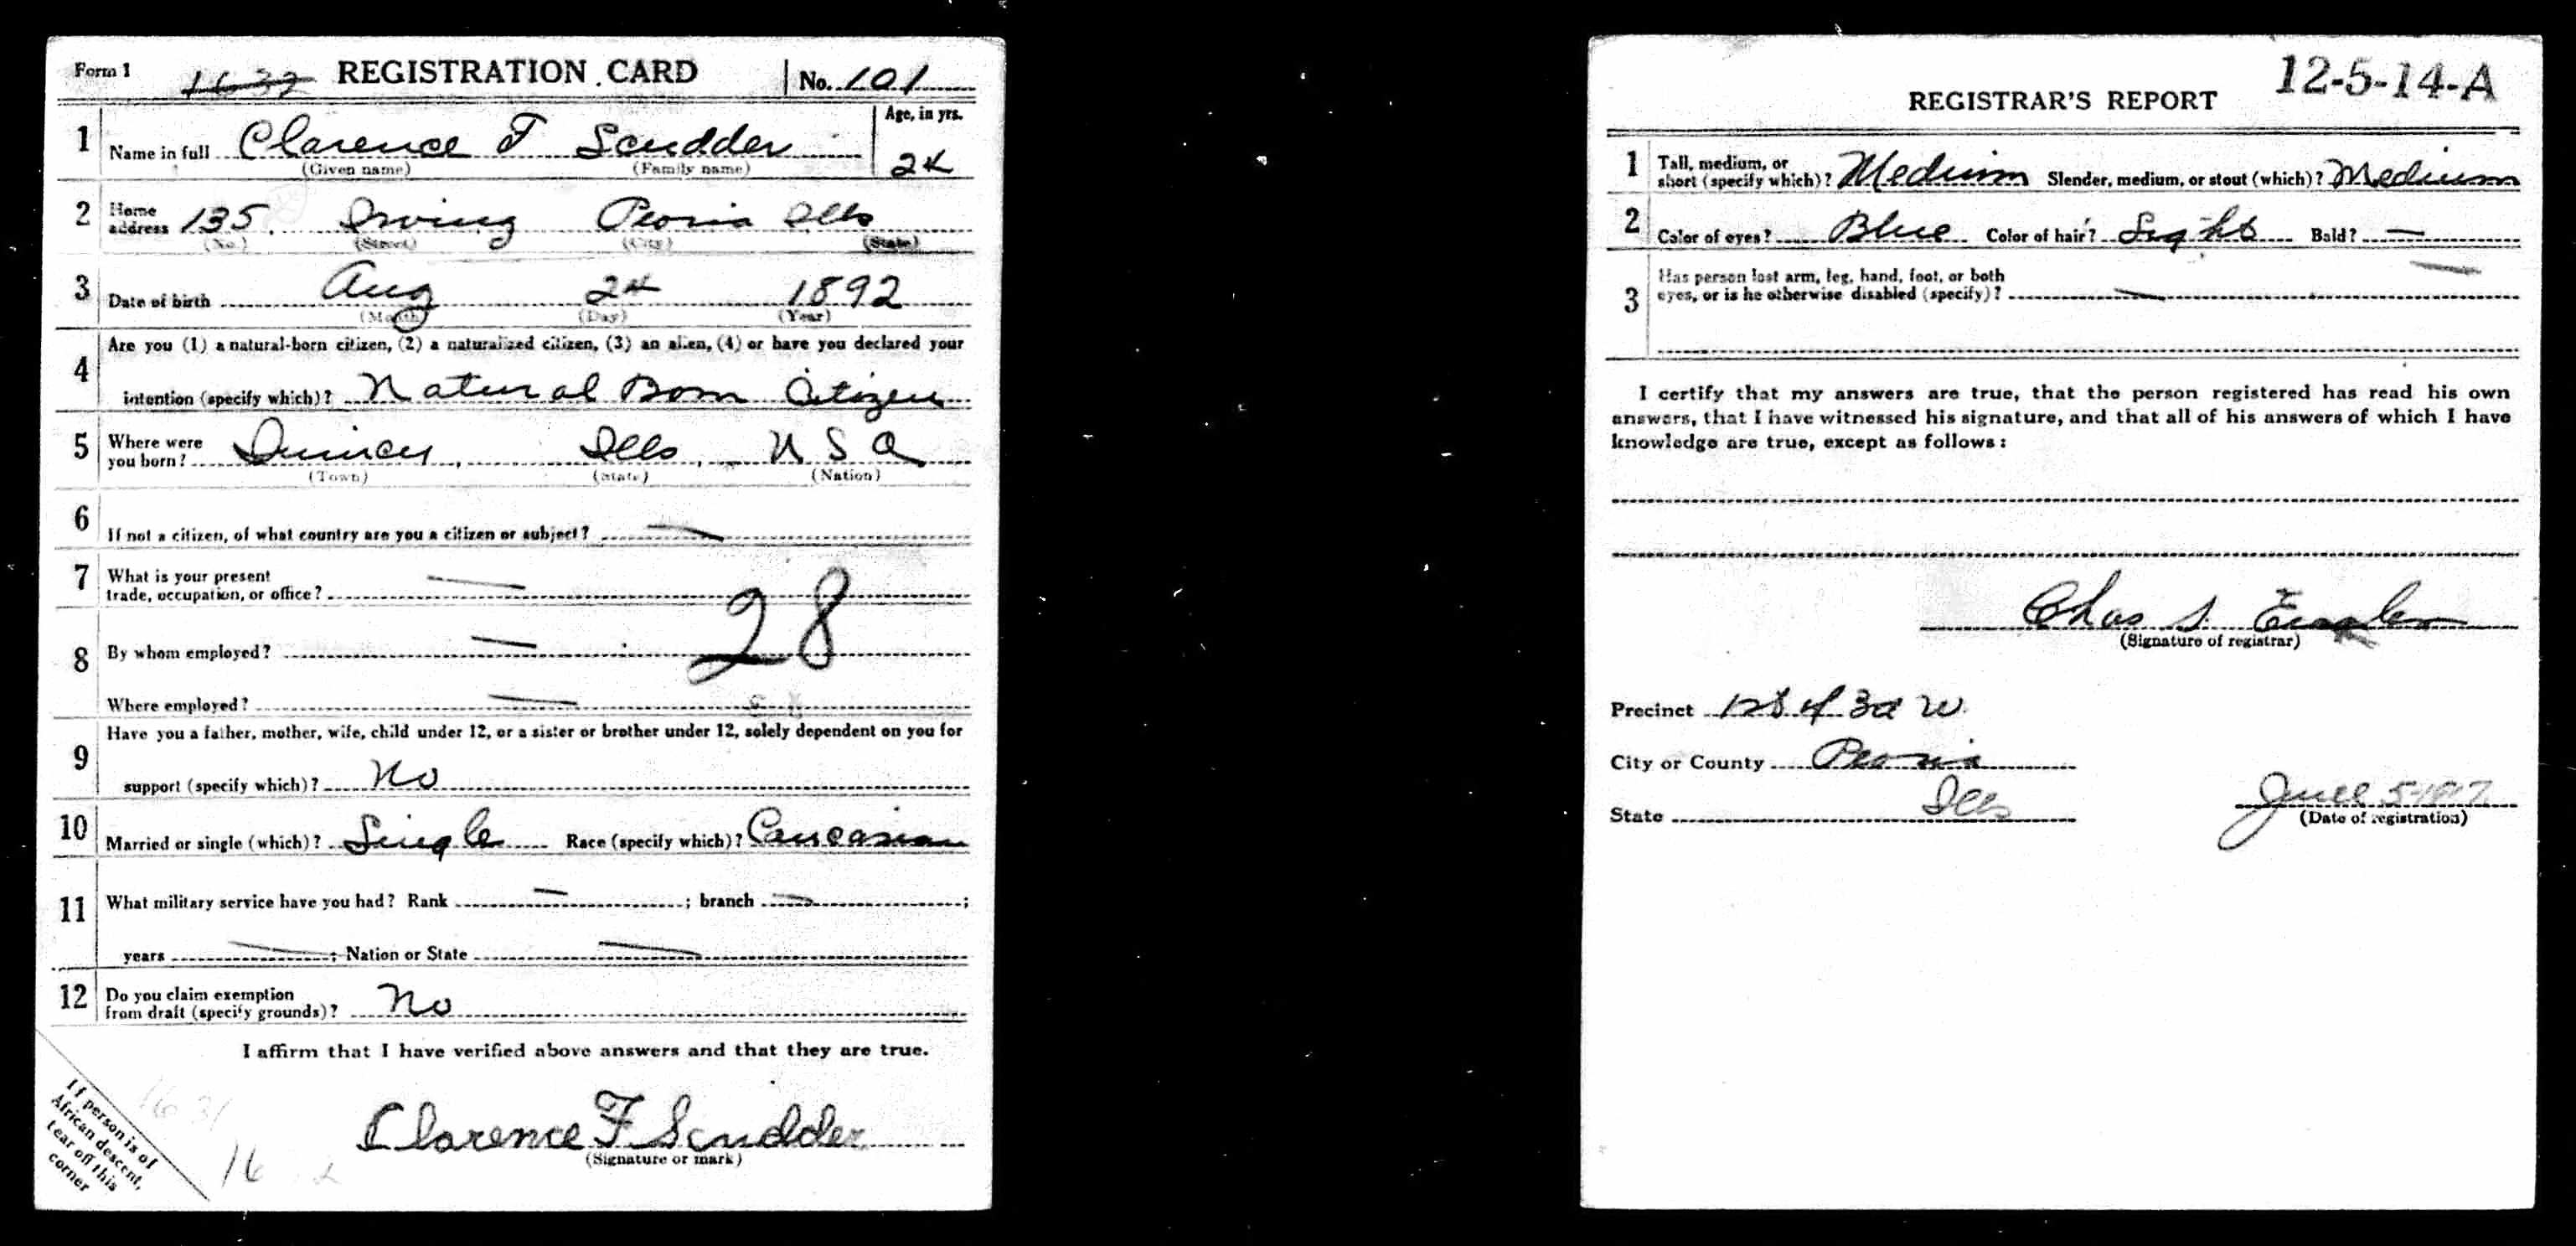 Form 1 1632 REGISTRATION CARD No. 101
1 Name in full Clarence F Scudder Age, in yrs.
(Given name) (Family name) 24
2 Home address 135 Irving Peoria Ills
(No.) (Street) (City) (State)
3 Date of birth Aug 24 1892
(Month) (Day) (Year)
4 Are you (1) a natural-born citizen, (2) a naturalized citizen, (3) an alien, (4) or have you declared your
intention (specify which)? Natural Born Citizen
5 Where were you born? Quincy, Ills, U S A
(Town) (State) (Nation)
6 If not a citizen, of what country are you a citizen or subject? —
7 What is your present
trade, occupation, or office? —
28
8 By whom employed? —
Where employed? —
9 Have you a father, mother, wife, child under 12, or a sister or brother under 12, solely dependent on you for
support (specify which)? No
10 Married or single (which)? Single Race (specify which)? Caucasian
11 What military service have you had? Rank — ; branch — ;
years — ; Nation or State —
12 Do you claim exemption
from draft (specify grounds)? No
I affirm that I have verified above answers and that they are true.
Clarence F Scudder
(Signature or mark)
If person is of
African descent,
tear off this
corner
1631
16
12-5-14-A
REGISTRAR'S REPORT
1 Tall, medium, or
short (specify which)? Medium Slender, medium, or stout (which)? Medium
2 Color of eyes? Blue Color of hair? Light Bald? —
3 Has person lost arm, leg, hand, foot, or both
eyes, or is he otherwise disabled (specify)? —
I certify that my answers are true, that the person registered has read his own
answers, that I have witnessed his signature, and that all of his answers of which I have
knowledge are true, except as follows:
Chas S.
(Signature of registrar)
Precinct of 3d W.
City or County Peoria
State Ills June 5-1917
(Date of registration)